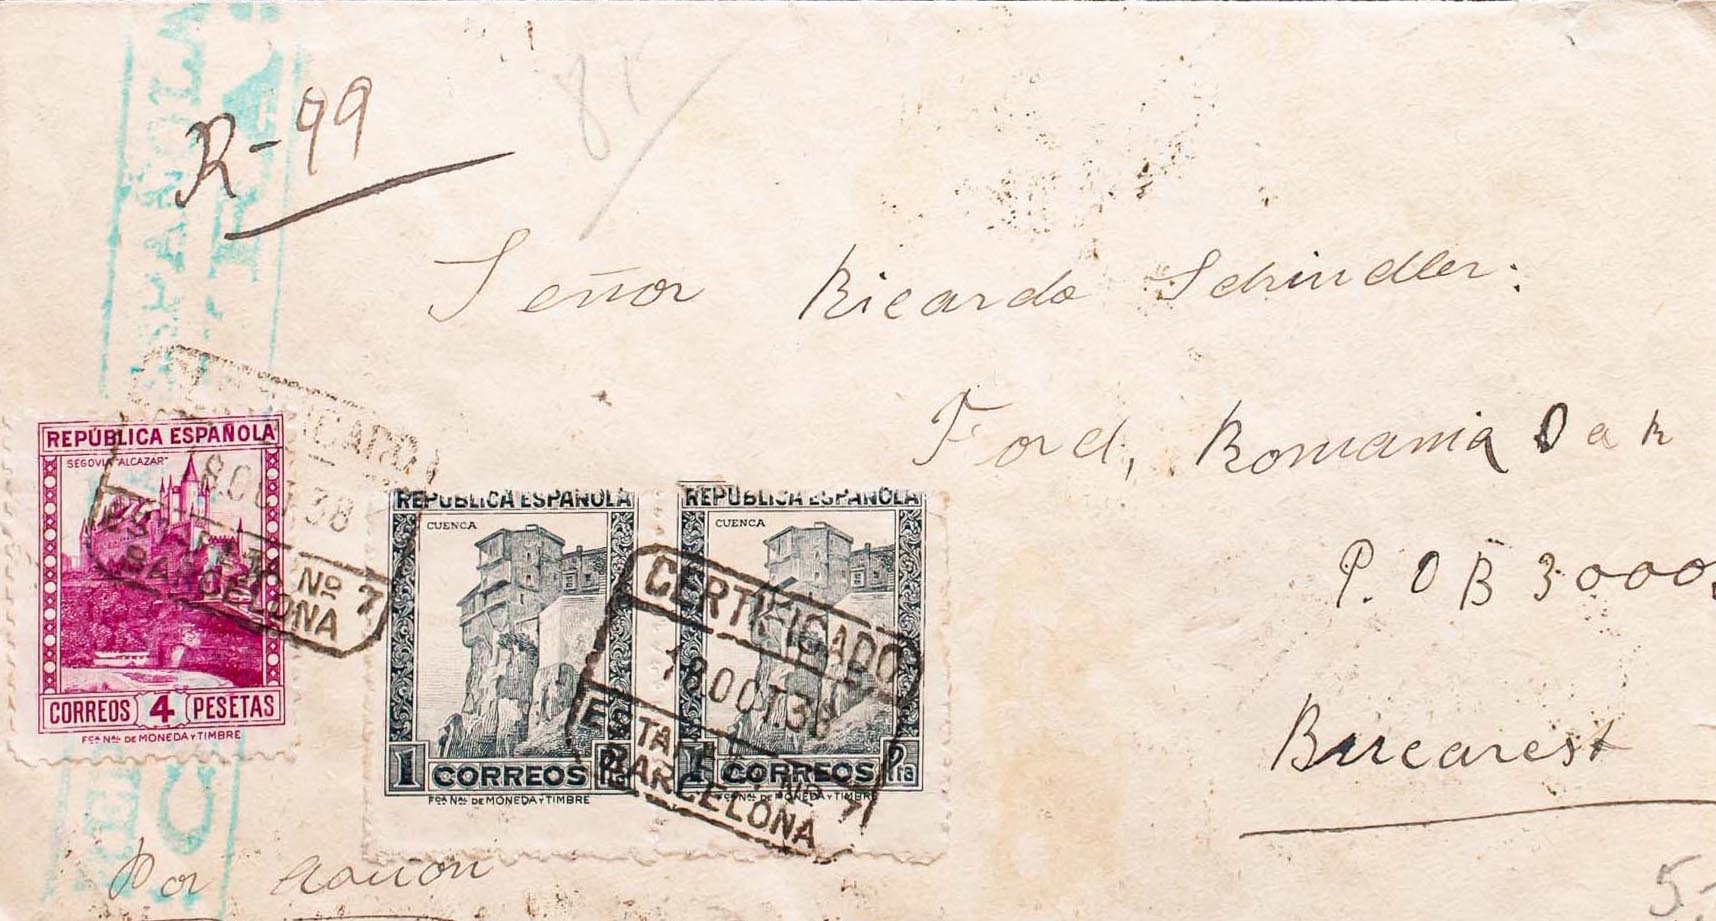 R-99
85
Señor Ricardo Schindler:
Ford, Romania
P. O B 3000.
Bucarest
Por avion
REPÚBLICA ESPAÑOLA
SEGOVIA "ALCAZAR"
CORREOS 4 PESETAS
FCA NAL DE MONEDA Y TIMBRE
REPÚBLICA ESPAÑOLA
CUENCA
1 CORREOS Pta
FCA NAL DE MONEDA Y TIMBRE
REPÚBLICA ESPAÑOLA
CUENCA
1 CORREOS Pta
FCA NAL DE MONEDA Y TIMBRE
CERTIFICADO
18.OCT.38
ESTAFETA Nº 7
BARCELONA
CERTIFICADO
18.OCT.38
ESTAFETA Nº 7
BARCELONA
ESPAÑOLA